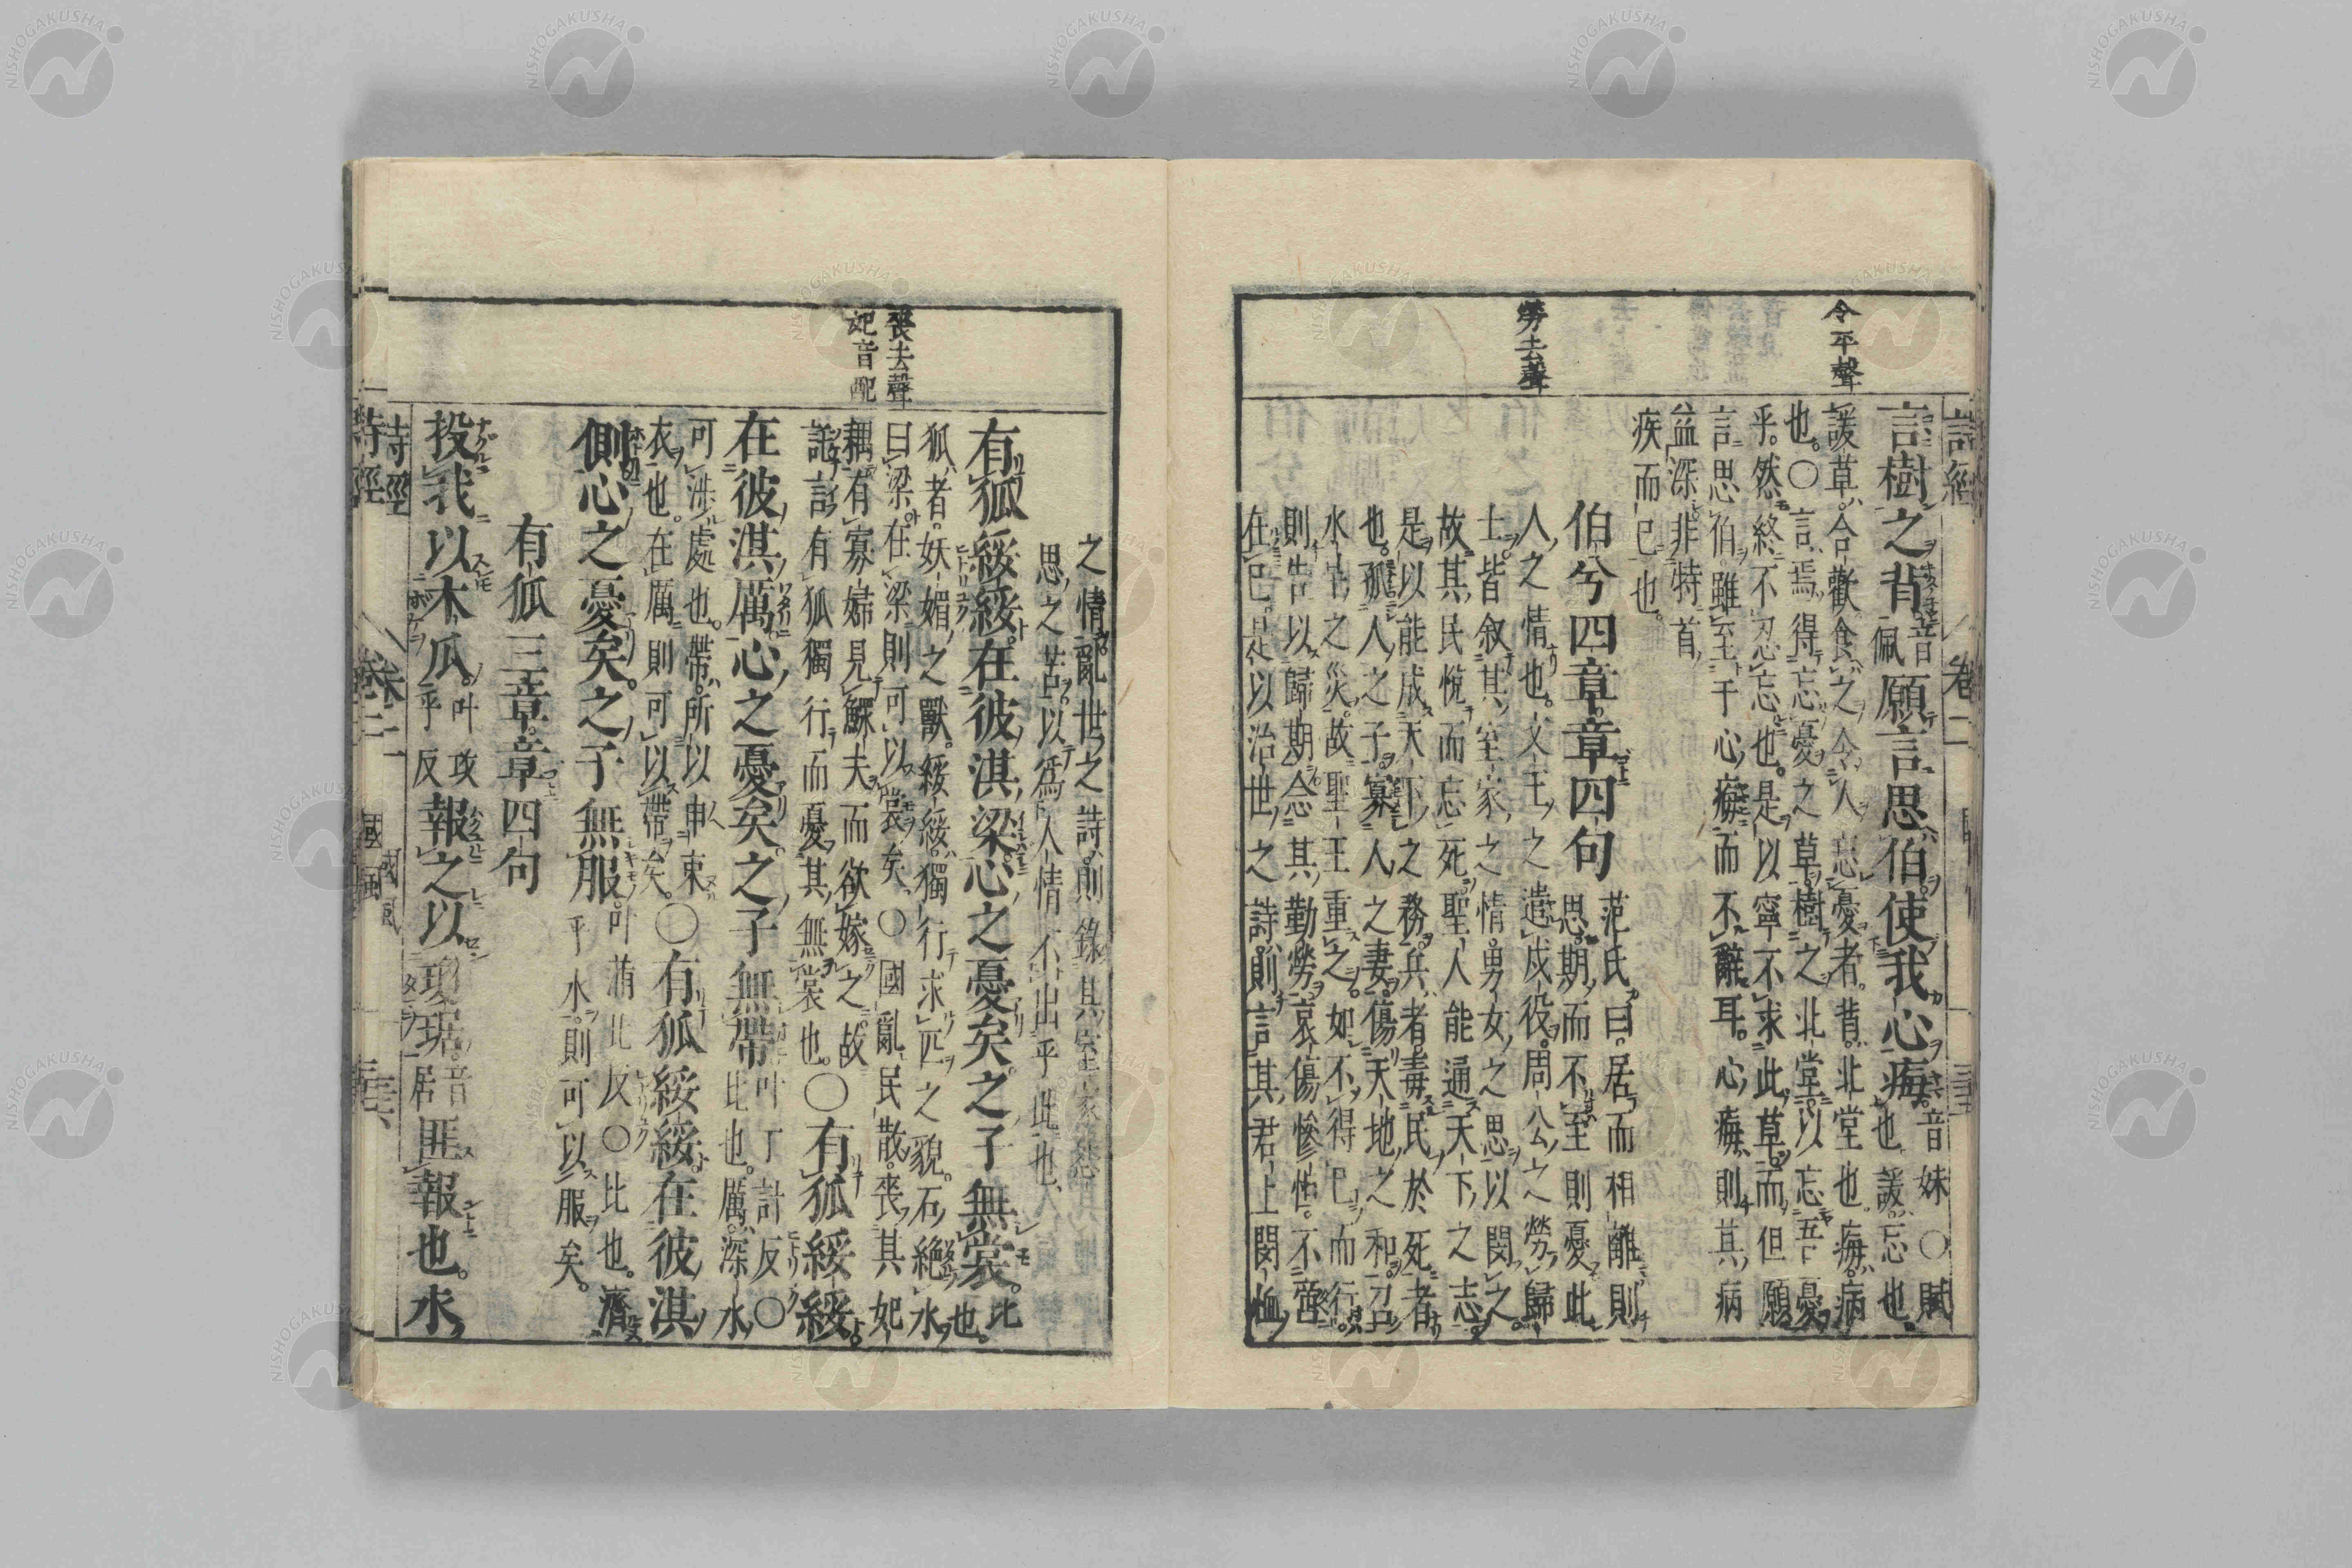 令平聲
勞去聲
詩經 卷二
言樹之背音佩願言思伯使我心痗音妹○賦也諼忘也
諼草合歡食之令人忘憂者背北堂也痗病
也○言焉得忘憂之草樹之北堂以忘吾憂
乎然終不忍忘也是以寧不求此草而但願
言思伯雖至于心痗而不辭耳心痗則其病
益深非特首
疾而已也
伯兮四章章四句范氏曰居而相離則
思期而不至則憂此
人之情也文王之遣戍役周公之勞歸
士皆叙其室家之情男女之思以閔之
故其民悅而忘死聖人能通天下之志
是以能成天下之務兵者毒民於死者
也孤人之子寡人之妻傷天地之和召
水旱之災故聖王重之如不得已而行
則告以歸期念其勤勞哀傷慘怛不啻
在已是以治世之詩則言其君上閔恤
喪去聲
妃音配
之情亂世之詩則錄其室家怨
思之苦以爲人情不出乎此也
有狐綏綏在彼淇梁心之憂矣之子無裳比也
狐者妖媚之獸綏綏獨行求匹之貌石絶水
曰梁在梁則可以裳矣○國亂民散喪其妃
耦有寡婦見鰥夫而欲嫁之故
託言有狐獨行而憂其無裳也○有狐綏綏
在彼淇厲心之憂矣之子無帶叶丁計反○比也厲深水
可涉處也帶所以申束
衣也在厲則可以帶矣○有狐綏綏在彼淇
側心之憂矣之子無服叶蒲北反○比也濟乎水則可以服矣
有狐三章章四句
投我以木瓜叶攻乎反報之以瓊琚音居匪報也永
詩經 卷二 國風